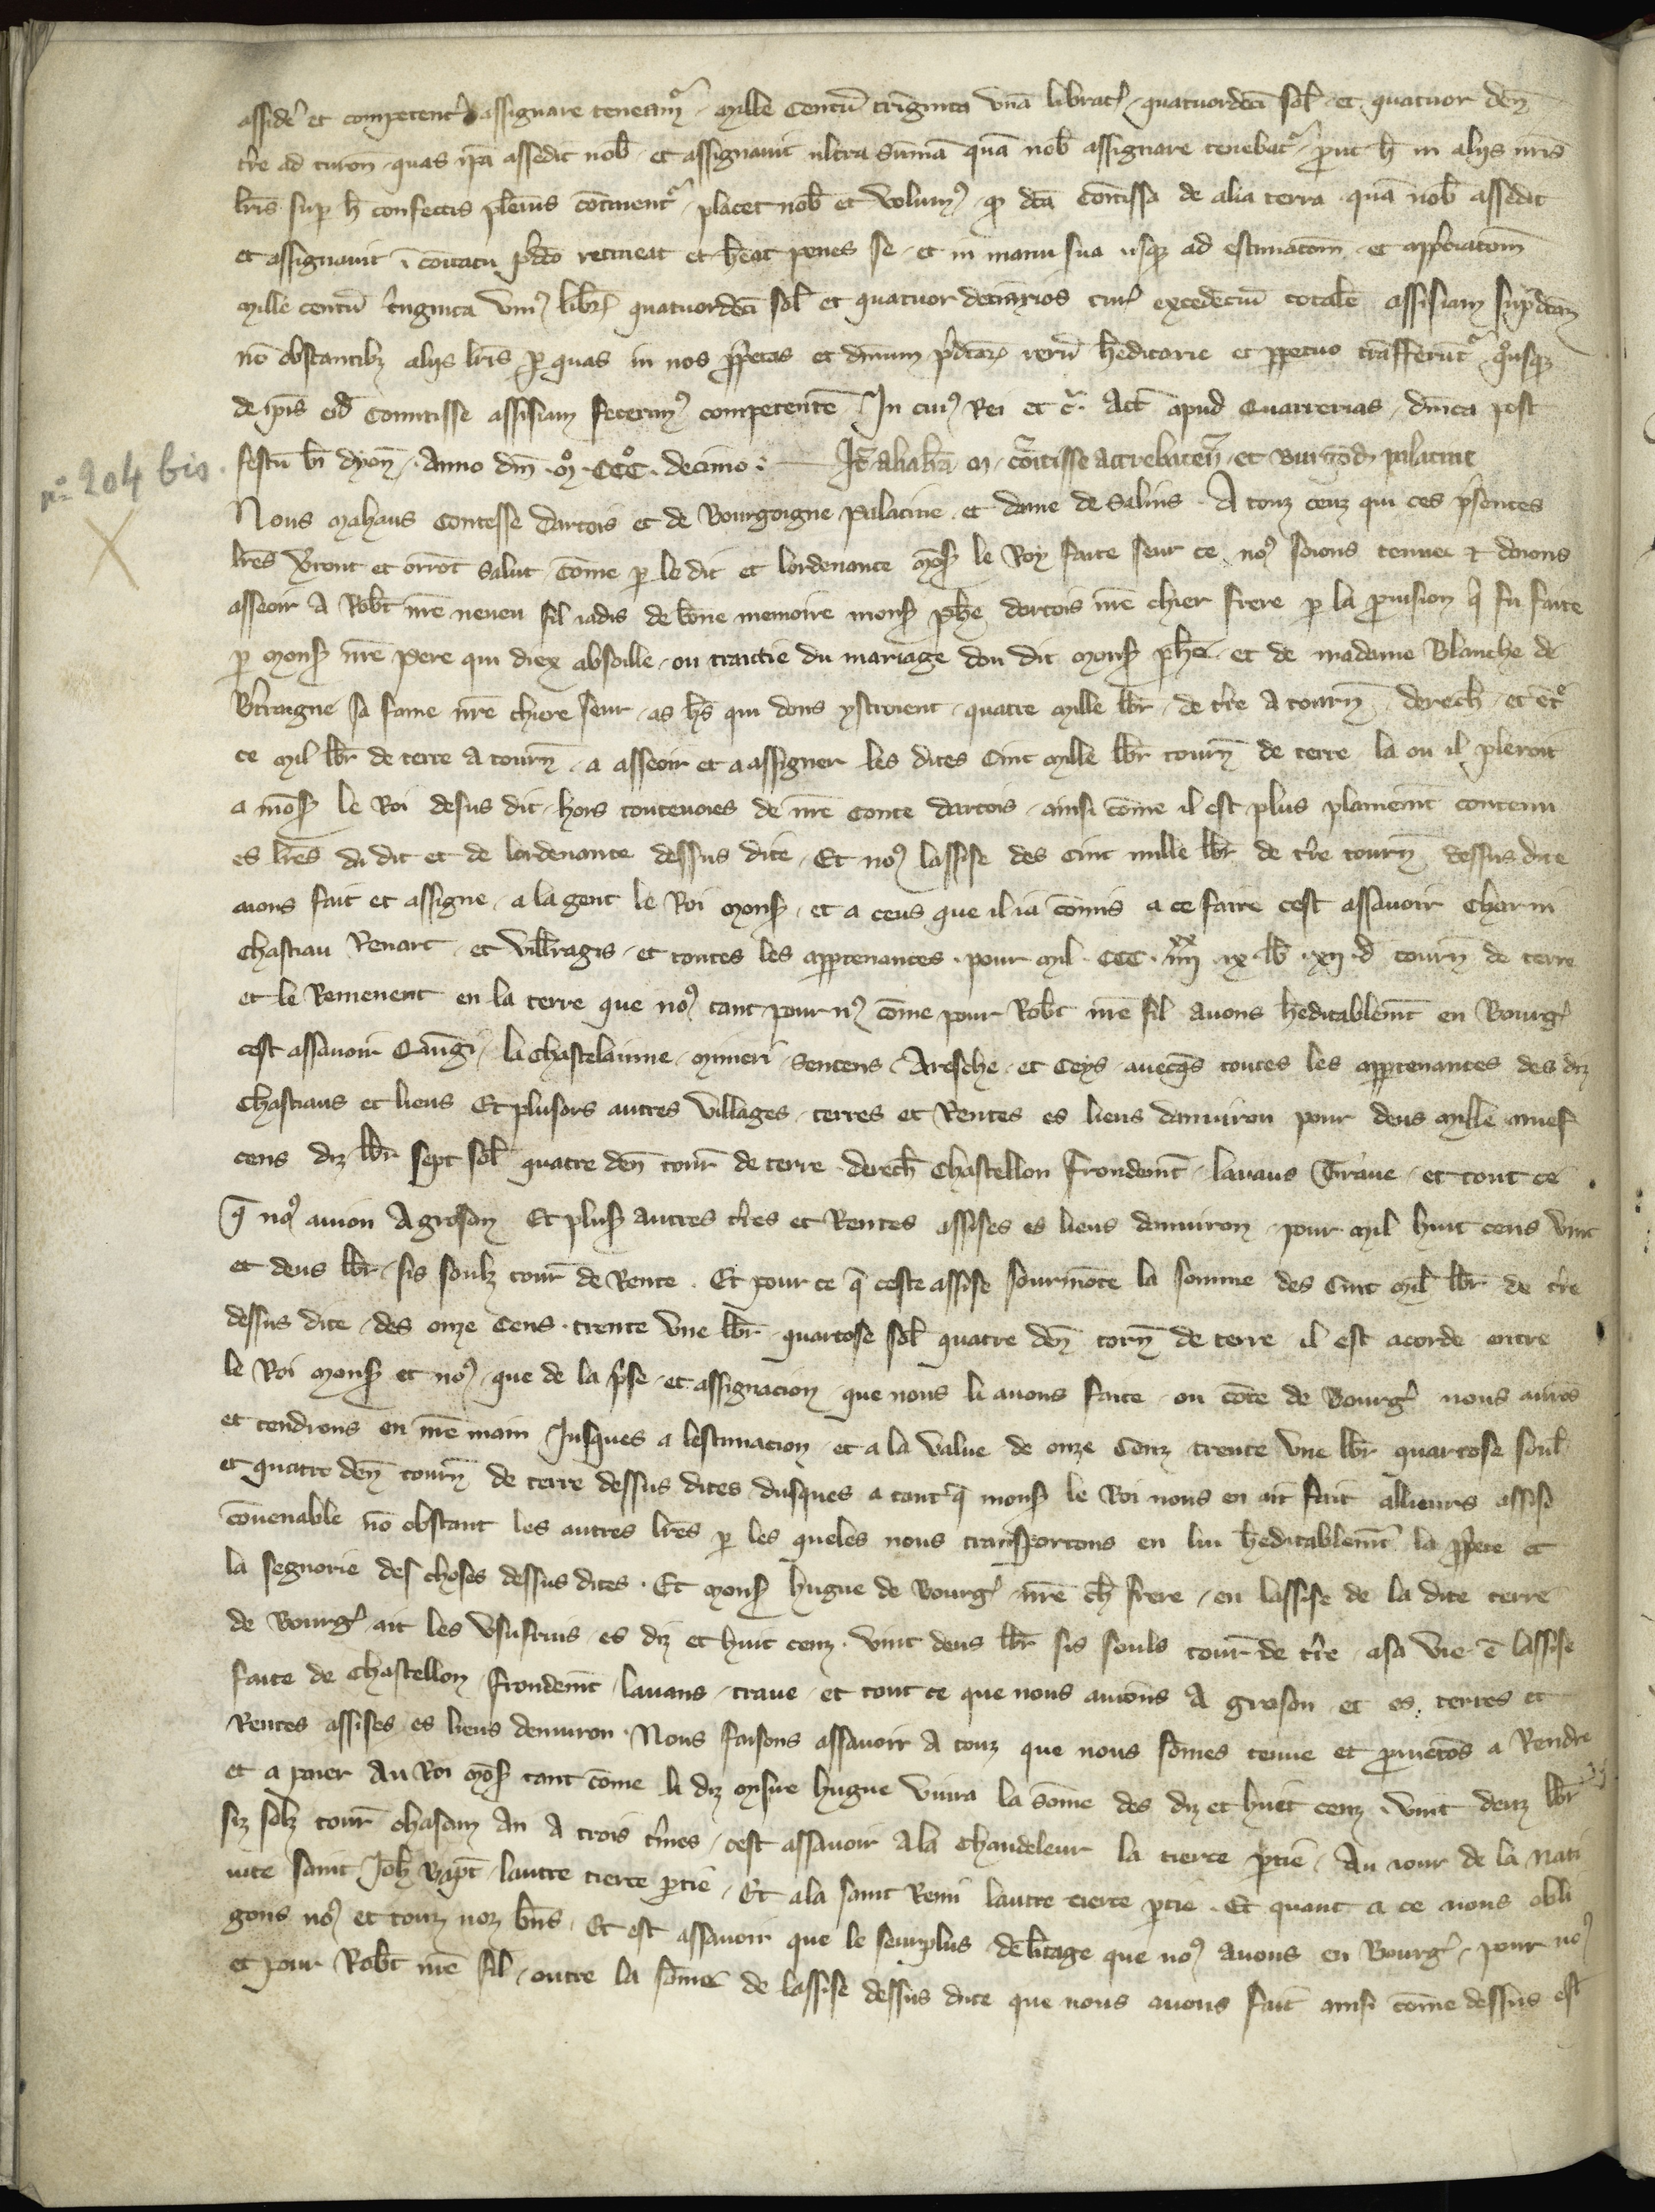 asside et competent assignare teneam Mille Centū triginta unā librat quatuordeci sol et quatuor den
tre ad turon quas ipa assedit nob et assignavit ultra sūmā quā nob assignare tenebat put h in aliis nris
lris sup h confectis pleius cōtinent placet nob et volum q dca Cōitissa de alia terra quā nob assedit
et assignavit ī cōitatu pdco retineat et heat penes se et in manu sua usq ad estimatōm et appciatōm
Mille centū triginta uni libr quatuordeci sol et quatuor denarios tur excedētiū totalē assisiam supdcam
nō obstantibz aliis lris p quas in nos ppetas et dnium pdcar rerū heditarie et ppetuo trāsferūt qusq
de ipis eid Comitisse assisiam fecerim competentē In cui Rei et c̄ Act apud Quarrerias dnica post
festū bi dyon Anno dni M CCC decimo It alia lra M cōitisse attrebaten et Burgōd palatine
nº 204 bis
X
Nous Mahaus Contesse dartois et de Bourgoigne Palatine et dame de Salins A touz ceuz qui ces psentes
lres verront et orrōt salut Cōme p le dit et lordenance Mōs le Roy faite seur ce no soions tenue et doions
asseoir A Robt nre neveu fil iadis de bōne memoire mons Phe dartois nre chier frere p la provision q fu faite
p Mons nre pere qui diex absoille ou traitie du mariage don dit Mons phe et de madame Blanche de
Bretaigne sa fame nre chiere seur as hrs qui dons ystroient quatre Mille lbr de tre a tourn derech et ētr
ce Mil lbr de terre a tourn a asseoir et a assigner les dites Cinc Mille lbr tourn de terre la ou il pleroit
a mōs le Roi desus dit hors toutevoies de nre Conte dartois ainsi cōme il est plus plainemt contenu
es lres du dit et de lordenance dessus dite Et no lassise des cinc mille lbr de tre tourn dessus dite
avons fait et assigne a la gent le Roi Mons et a ceus que il i a cōmis a ce faire cest assavoir Charni
Chastiau Renart et Villragis et toutes les appartenances pour Mil CCC IIIIxx IX lb XII d tourn de terre
et le Remenent en la terre que no tant pour n cōme pour Robt nre fil avons heditablemt en Bourg
cest assavoir Quingi la Chastelainne Mimeri Sentens Aresche et Ceys avecqs toutes les appartenances des diz
Chastiaus et lieus Et plusors autres villages terres et Rentes es lieus danviron pour deus Mille nuef
cens diz lbr sept sol quatre den tour de terre derech Chastellon frondemt lavans Trave et tout ce
q no avion A groson Et plus autres tres et Rentes assises es lieus danviron pour Mil huit cens vint
et deus lbr sis soulz tour de Rente Et pour ce q ceste assise sourmōte la somme des Cinc Mil lbr de tre
dessus dite des onze Cens trente une lbr quartose sol quatre den torn de terre il est acorde entre
le Roi Mons et no que de la prise et assignacion que nous li avons faite ou cōte de Bourg nous avrōs
et tendrons en nre main Jusques a lestimacion et a la value de onze Cenz trente une lbr quartose soul
et quatre den tourn de terre dessus dites Jusques a tant q mons le Roi nous en ait fait ailleurs assise
cōvenable nō obstant les autres lres p les queles nous transportons en lui heditablemt la ppete et
la segnorie des choses dessus dites Et Mons hugue de Bourg nre ch frere en lassise de la dite terre
de Bourg ait les usufruis es diz et huit cenz vint deus lbr sis souls tour de tre a sa vie ē lassise
faite de Chastellon frondemt lavans trave et tout ce que nous avions A groson et es terres et
Rentes assises es lieus denviron Nous faisons assavoir A touz que nous sōmes tenue et pmetōs a Rendre
et a paier Au Roi Mōs tant cōme li diz Mesire hugue vivra la sōme des diz et huit cenz vint deuz lbr
siz solz tour chascun An A trois tmes cest assavoir A la Chandeleur la tierce ptie Au iour de la Nati
vite saint Joh Bapt lautre tierce ptie Et a la saint Remi lautre tierce ptie Et quant a ce nous obli
gons no et touz noz bns Et est assavoir que le seurplus de litage que no avons en Bourg pour no
et pour Robt nre fil outre la sōme de lassise dessus dite que nous avons fait ainsi cōme dessus est